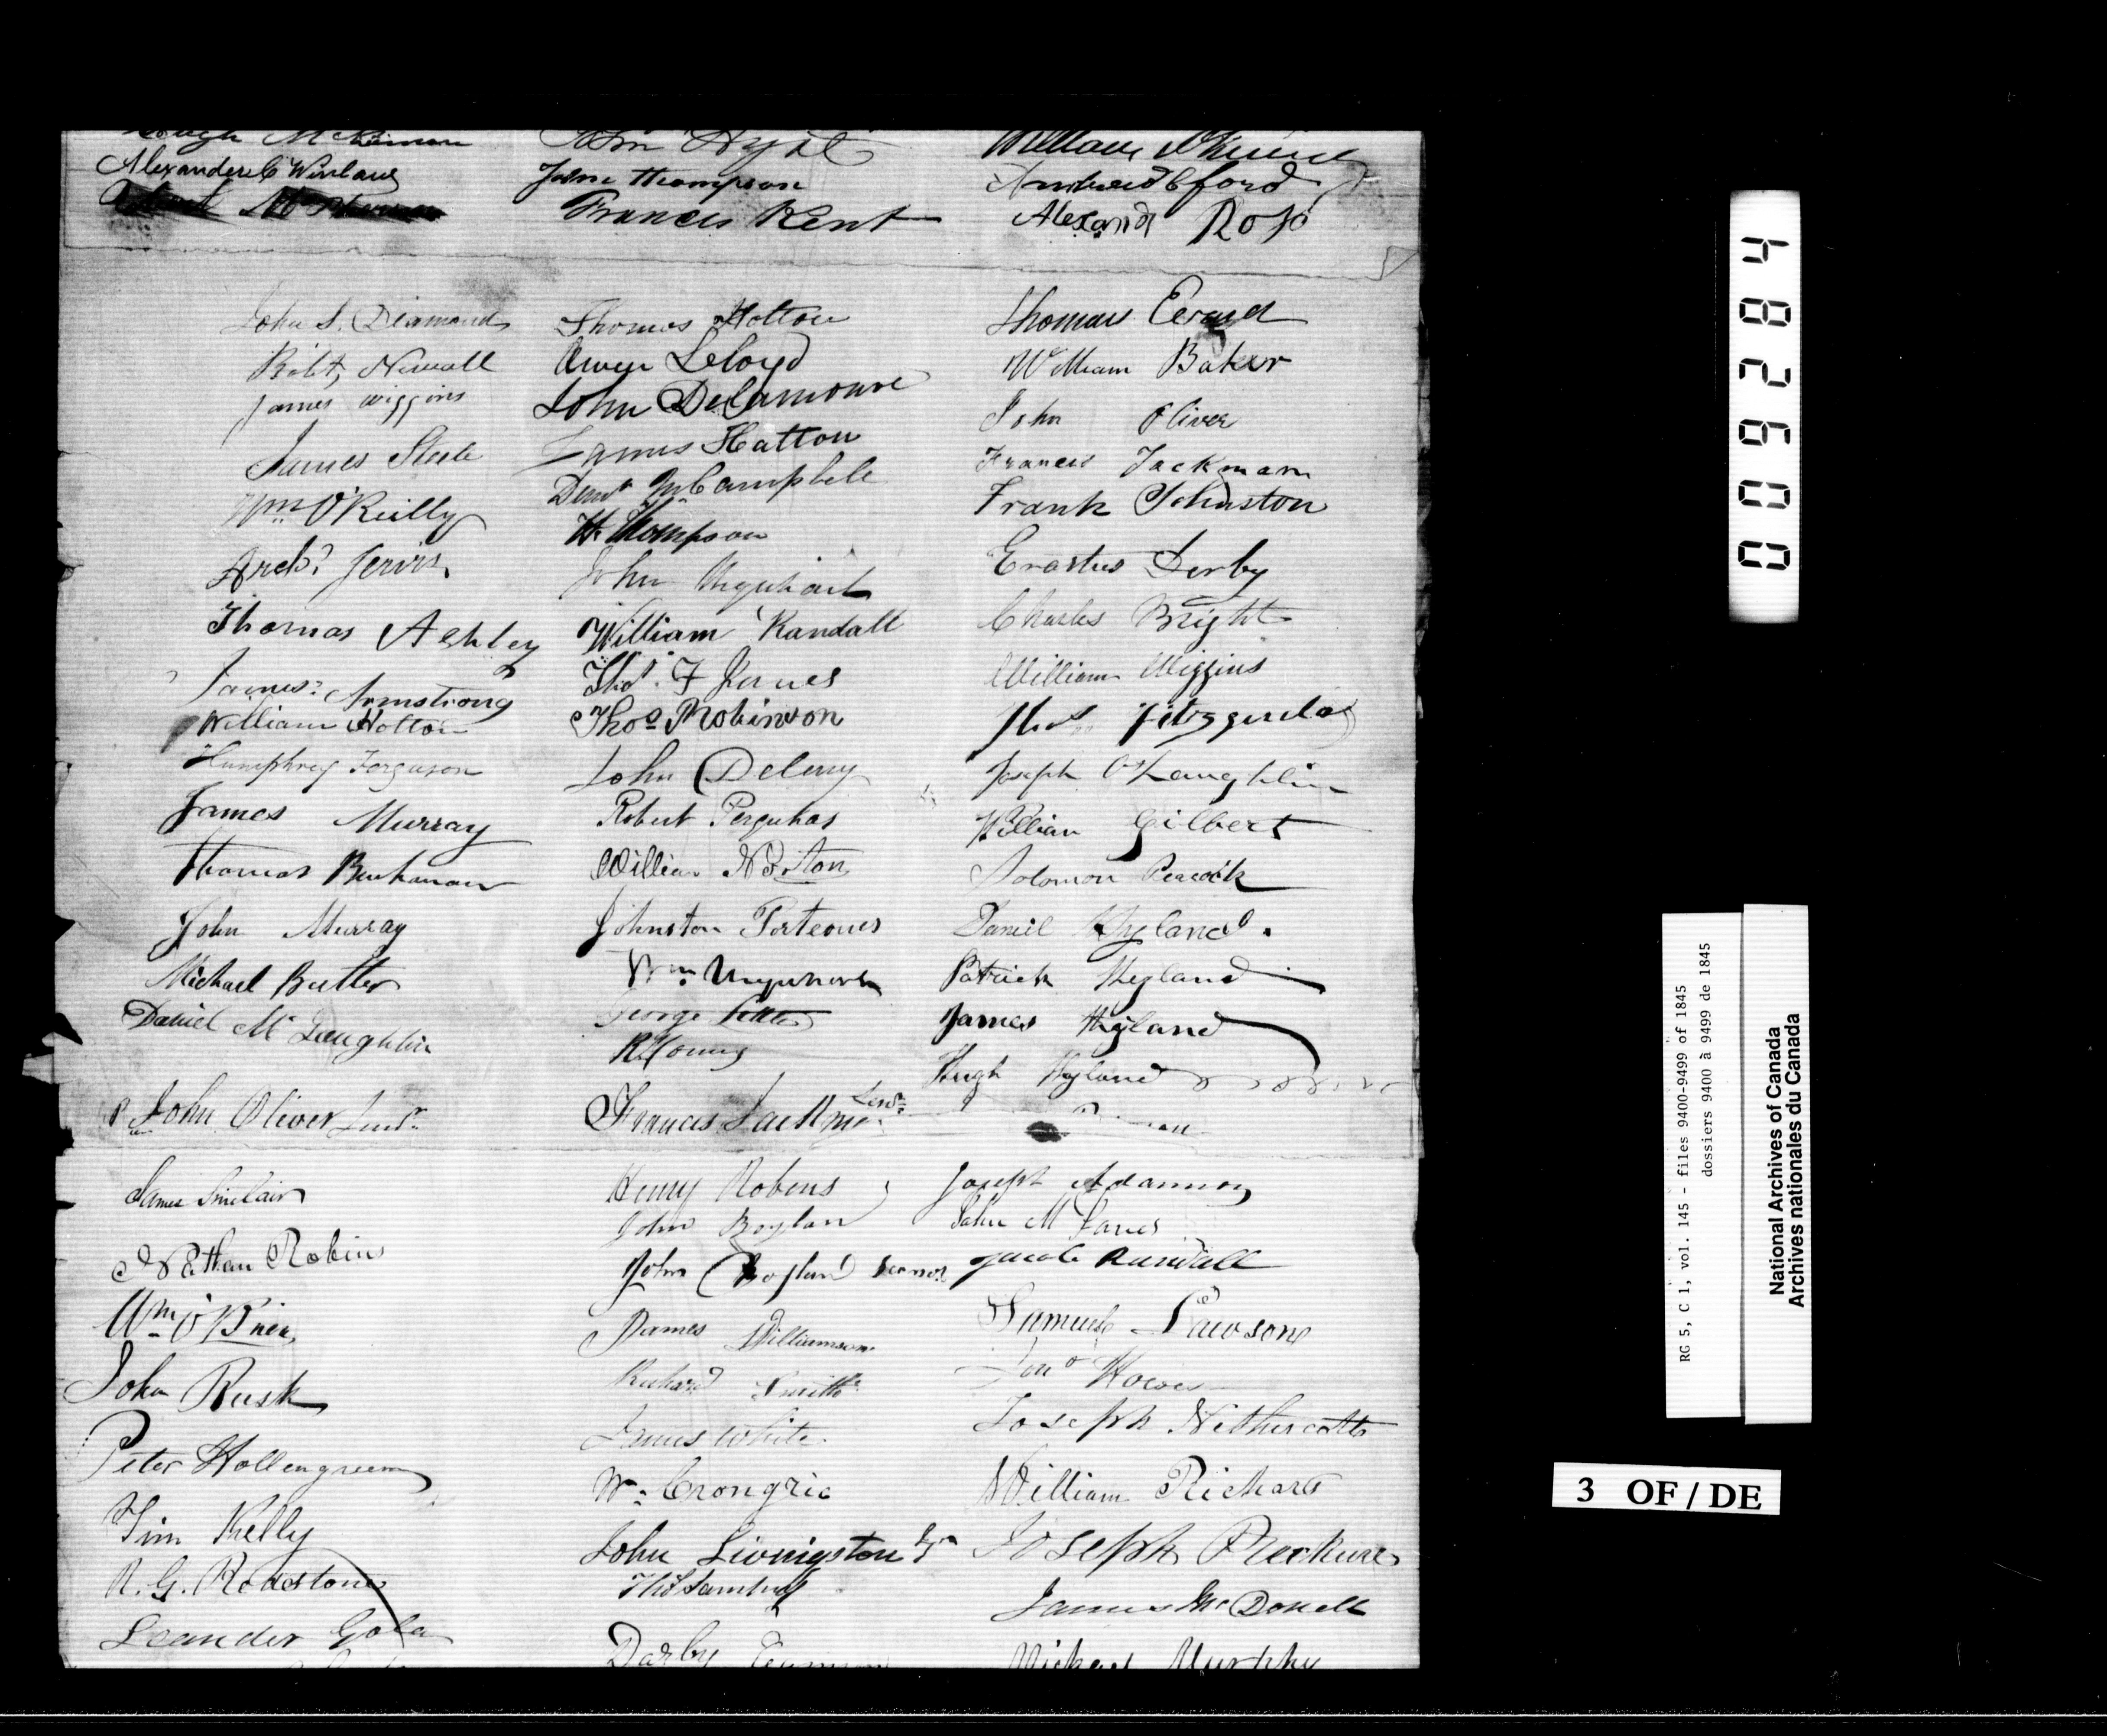 Hugh McKinnon
Alexander C Winlaws
John Hyatt
John Thompson
Francis Kent
William
Andrew Bford
Alexandr Ross
John S. Diamond
Robt Newall
James Wiggins
James Steele
Wm O'Reilly
Archd Jervis
Thomas Ashley
James Armstrong
William Holton
Humphrey Ferguson
James Murray
Thomas Buchanan
John Murray
Michael Butler
Daniel McLaughlin
John Oliver Senr
Thomas Holton
Owen Leloyd
John Delamoure
James Hatton
McCampbell
H. Thompson
John Urquhart
William Randall
Thos. F James
Thos Robinson
John Deleny
Robert
William Norton
Johnston Porteous
Wm Urquhart
George
R Young
Francis Jackman Senr
Thomas Evard
William Baker
John Oliver
Francis Jackman
Frank Johnston
Erastus Derby
Charles Bright
William Wiggins
Thos. Fitzgerald
Joseph O'Laughlin
William Gilbert
Solomon Peacock
Daniel Hyland.
Patrick Hyland
James Hyland
Hugh Hyland
James Sinclair
Nathan Robins
Wm O'Brien
John Rusk
Peter Hollengreen
Tim Kelly
R. G. Rodestone
Leander Gola
Henry Robens
John Boylan
John Boylan Seanor
James Williamson
Richard Smith
James White
Wm Crongrie
John Livingston
Thos
Darby
Joseph Adamson
John M James
Jacob Randall
Samuel Lawson
Jno Howes
Joseph Nethercotte
William Richard
Joseph
James McDonell
Michael Murphy
009284
RG 5, C 1, vol. 145 - files 9400-9499 of 1845
dossiers 9400 à 9499 de 1845
National Archives of Canada
Archives nationales du Canada
3 OF / DE